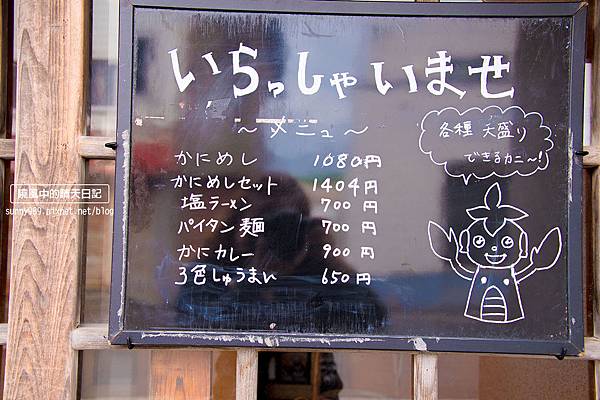 いらっしゃいませ
～メニュー～
かにめし 1080円
かにめしセット 1404円
塩ラーメン 700円
パイタン麺 700円
かにカレー 900円
3色しゅうまい 650円
各種 大盛り
できるカニ～!
晴天日記
sunny089.pixnet.net/blog